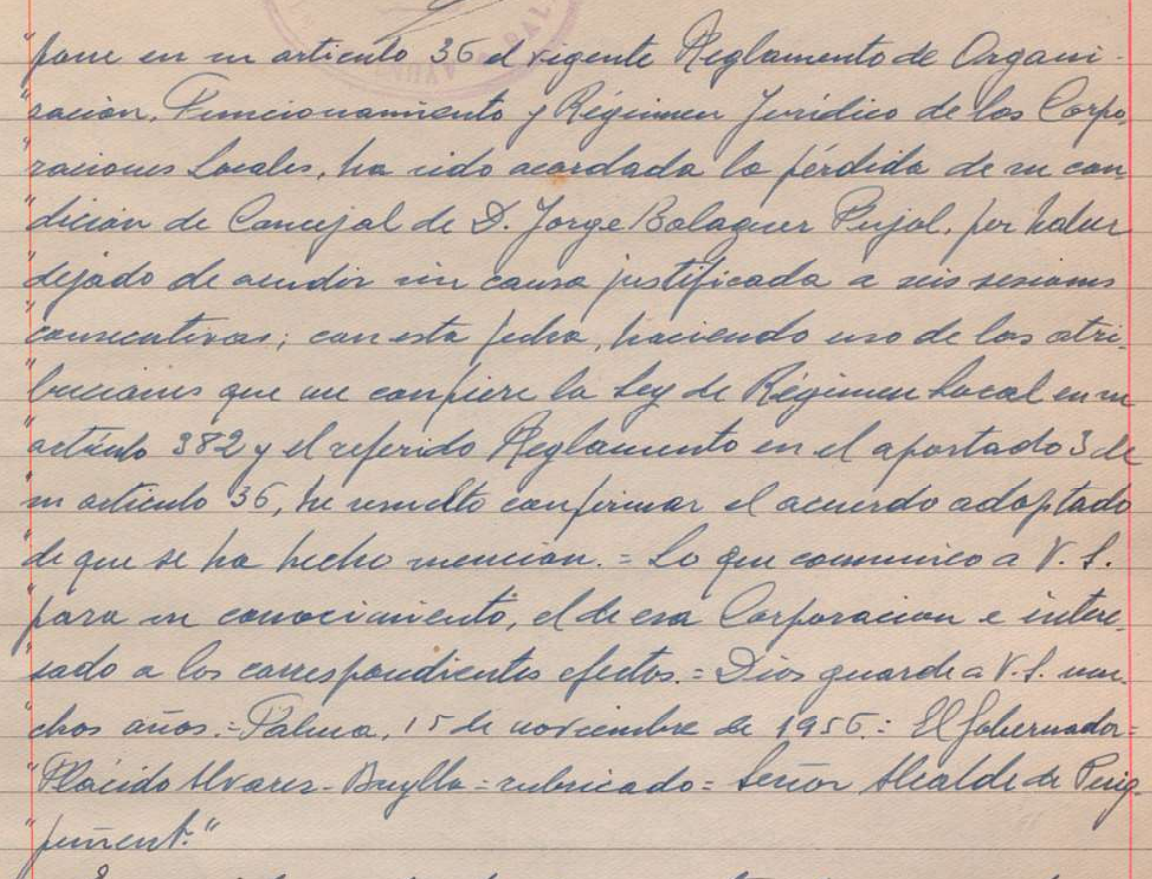 "pone en su artículo 36 el vigente Reglamento de Organi-
"zación, Funcionamiento y Régimen Jurídico de las Corpo-
"raciones Locales, ha sido acordada la pérdida de su con
"dición de Concejal de D. Jorge Balaguer Pujol, por haber
"dejado de acudir sin causa justificada a seis sesiones
"consecutivas; con esta fecha, haciendo uso de las atri-
"buciones que me confiere la Ley de Régimen Local en su
"artículo 382 y el referido Reglamento en el apartado 3 de
"su artículo 36, he resuelto confirmar el acuerdo adoptado
"de que se ha hecho mención. = Lo que comunico a V. S.
"para su conocimiento, el de esa Corporación e intere-
"sado a los correspondientes efectos. = Dios guarde a V. S. mu-
"chos años. = Palma, 15 de noviembre de 1956. = El Gobernador =
"Plácido Alvarez-Buylla = rubricado = Señor Alcalde de Puig-
"puñent."